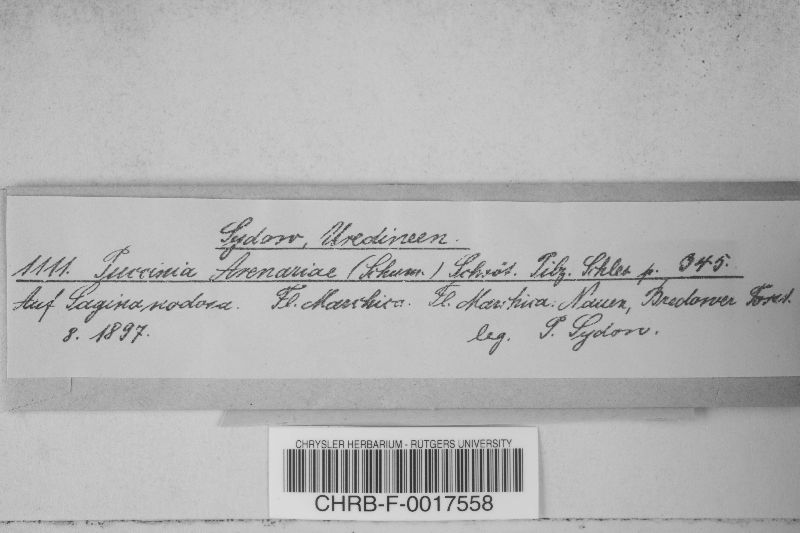 Sydow, Uredineen.
1111. Puccinia Arenariae (Schum.) Schröt. Pilz. Schles p. 345.
Auf Sagina nodosa. Fl. Marchica. Fl. Marchica: Nauen, Bredower Forst.
8. 1897. leg. P. Sydow.
CHRYSLER HERBARIUM - RUTGERS UNIVERSITY
CHRB-F-0017558